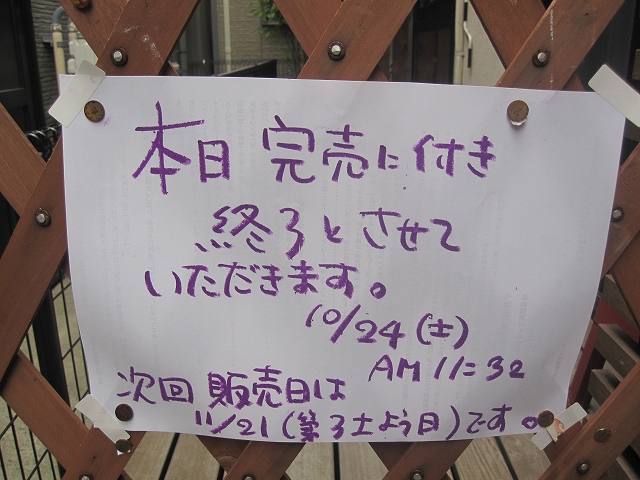 本日 完売に付き
終了とさせて
いただきます。
10/24(土)
AM 11:32
次回 販売日は
11/21(第3土よう日)です。